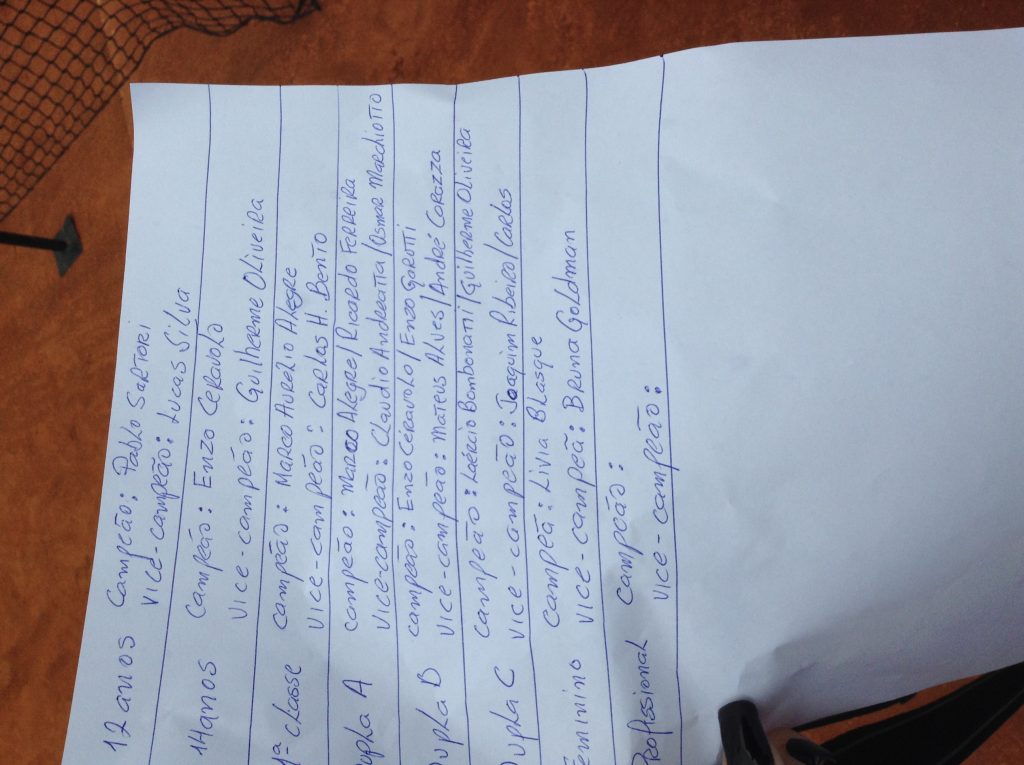 12 anos Campeão: Pablo Sartori
Vice-campeão: Lucas Silva
14 anos Campeão: Enzo Ceravolo
Vice-campeão: Guilherme Oliveira
1ª classe campeão: Marco Aurelio Alegre
Vice-campeão: Carlas H. Bento
Dupla A campeão: Marco Alegre/Ricardo Ferreira
Vice-campeão: Claudio Andreatta/Osmar Marchiotto
Dupla B campeão: Enzo Ceravolo/Enzo Gorotti
Vice-campeão: Mateus Alves/André Corazza
Dupla C campeão: Laércio Bombonati/Guilherme Oliveira
vice-campeão: Joaquim Ribeiro/Carlos
Feminino campeã: Livia Blasque
vice-campeã: Bruna Goldman
Profissional campeão:
vice-campeão: